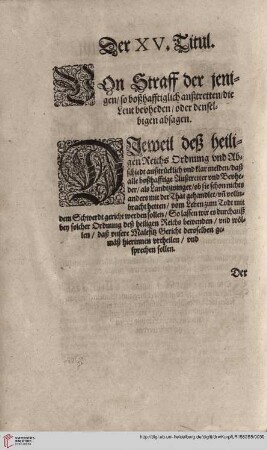 Der XV. Titul.
VOn Straff der jeni-
gen/ so boßhafftiglich außtretten/ die
Leut bevheden/ oder densel-
bigen absagen.
DIeweil deß heili-
gen Reichs Ordnung vnd Ab-
schiedt außtrücklich vnd klar melden/ daß
alle boßhafftige Außtretter vnd Bevhe-
der/ als Landtzwinger/ ob sie schon nichts
anders mit der That gehandlet/ vñ voll-
bracht hetten/ vom Leben zum Todt mit
dem Schwerdt gericht werden sollen/ So lassen wir es durchauß
bey solcher Ordnung deß heiligen Reichs bewenden/ vnd wöl-
len/ daß vnsere Malefitz Gericht derselben ge-
mäß hierinnen vrtheilen/ vnd
sprechen sollen.
Der